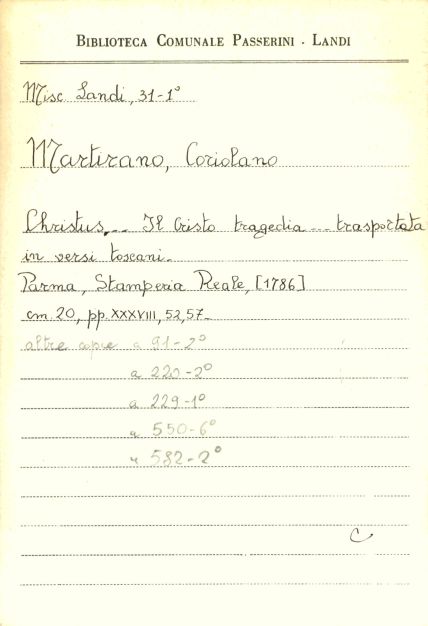 BIBLIOTECA COMUNALE PASSERINI - LANDI
Misc Landi, 31-1°
Martirano, Coriolano
Christus... Il Cristo tragedia ... trasportata
in versi toscani.
Parma, Stamperia Reale, [1786]
cm. 20, pp. XXXVIII, 52, 57.
altre copie a 91-2°
a 220-2°
a 229-1°
a 550-6°
" 582-2°
C